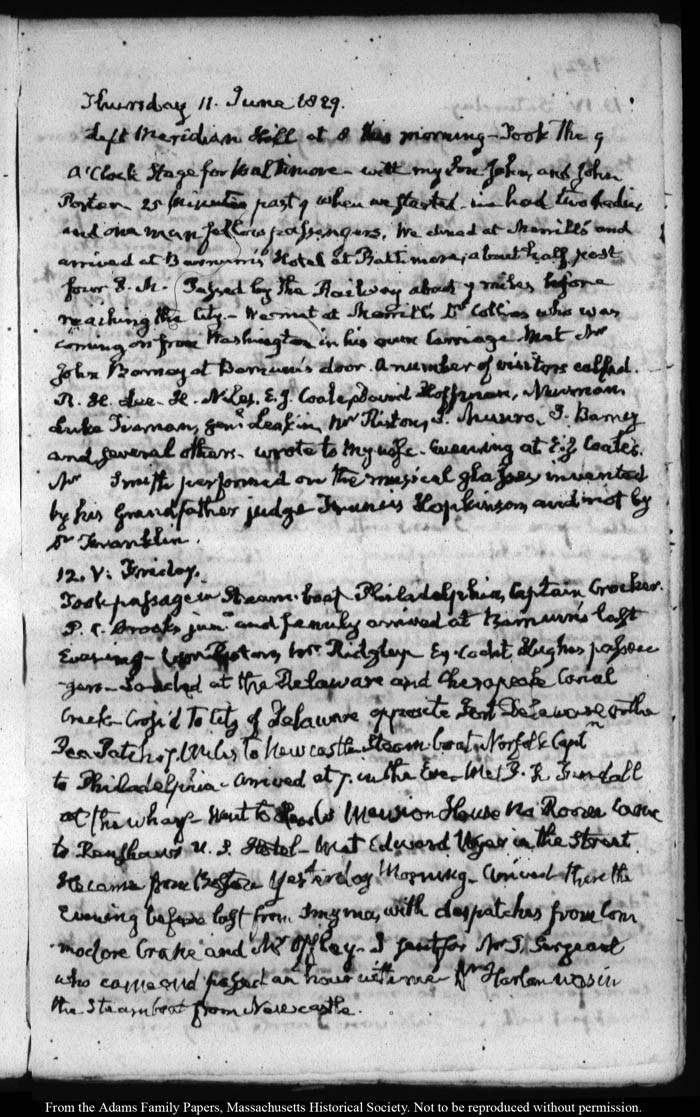 Thursday 11. June 1829.
Left Meridian Hill at 8 this morning – Took the 9
O'Clock Stage for Baltimore – with my Son John, and John
25 Minutes past 9 when we started – we had two Ladies,
and one man fellow passengers. We dined at Merrill's and
arrived at Barnum's Hotel at Baltimore, about half past
four P.M. Passed by the Railway about 7 miles before
reaching the City – We met at Merrill's Dr. Collins who was
coming on from Washington in his own Carriage. Met Mr
John Barney at Barnum's door. A number of visitors called.
H. Niles, E. J. Coale, David Hoffman, Newman,
Luke Tiernan, Genl. Mr Munro, J. Barney
and several others – wrote to my wife – Evening at E. J. Coale's.
Mr Smith performed on the musical glasses invented
by his Grandfather judge Francis Hopkinson, and not by
Dr Franklin.
12. V: Friday.
Took passage in Steam-boat Philadelphia, Captain Crocker.
P. C. Brooks junr. and family arrived at Barnum's last
Evening – Mr. Ridgley Hughes passen
gers – Landed at the Delaware and Chesapeake Canal
Creek – Cross'd to City of Delaware opposite Fort Delaware on the
Pea Patch – 7 Miles to Newcastle. Steam-boat Norfolk Captn
to Philadelphia – Arrived at 7. in the Eve – Met
at the wharf – Went to Mansion House No Room – Came
to Renshaw's U.S. Hotel – Met Edward Wyer in the Street
He came from yesterday Morning – Arrived there the
Evening before last from Smyrna, with despatches from Com
modore Crane and Mr Offley – I sent for Mr J. Sergeant
who came and passed an hour with me – Harlan was in
the Steamboat from Newcastle.
From the Adams Family Papers, Massachusetts Historical Society. Not to be reproduced without permission.